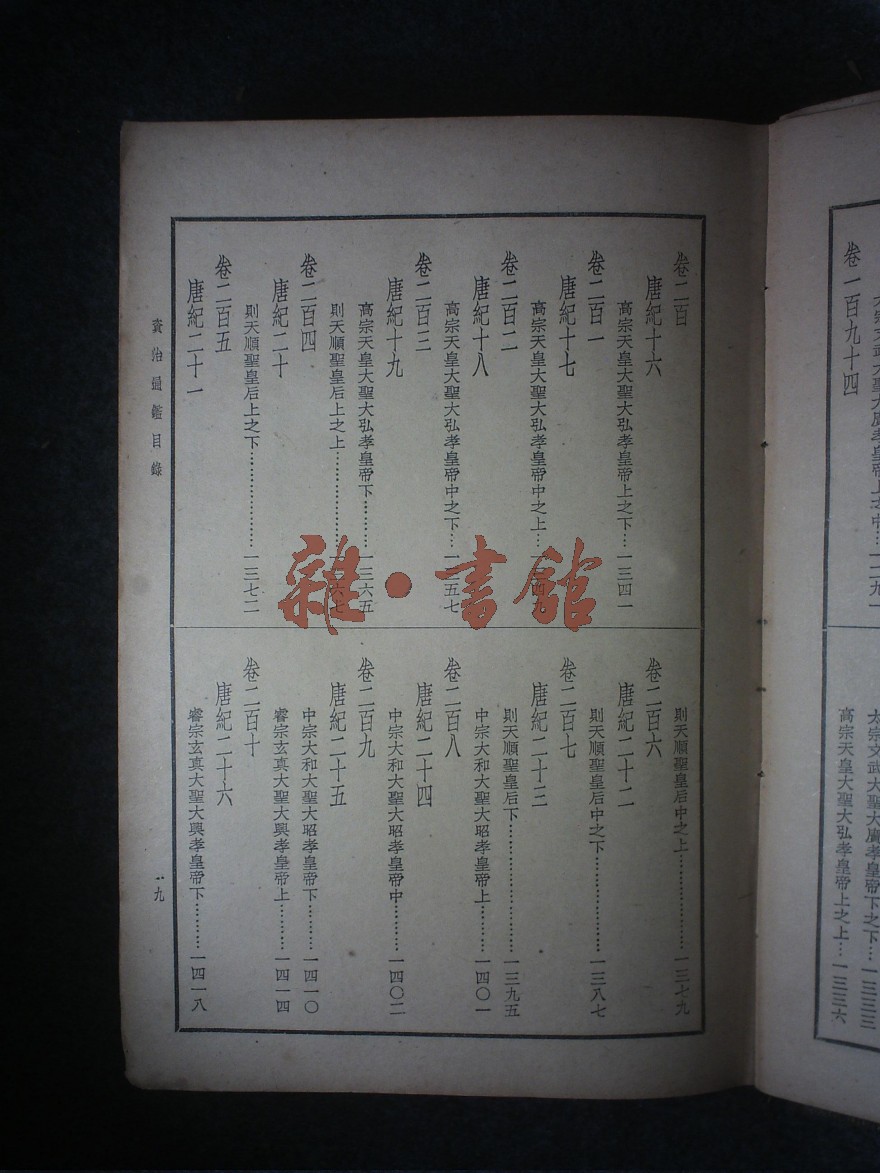 太宗文武大聖大廣孝皇帝上之中…一二九一
卷一百九十四
太宗文武大聖大廣孝皇帝下之下…一三三三
高宗天皇大聖大弘孝皇帝上之上…一三三六
卷二百
唐紀十六
高宗天皇大聖大弘孝皇帝上之下…一三四一
卷二百一
唐紀十七
高宗天皇大聖大弘孝皇帝中之上…
卷二百二
唐紀十八
高宗天皇大聖大弘孝皇帝中之下…一三五七
卷二百三
唐紀十九
高宗天皇大聖大弘孝皇帝下………一三六五
則天順聖皇后上之上………………一三六七
卷二百四
唐紀二十
則天順聖皇后上之下………………一三七二
卷二百五
唐紀二十一
則天順聖皇后中之上………………一三七九
卷二百六
唐紀二十二
則天順聖皇后中之下………………一三八七
卷二百七
唐紀二十三
則天順聖皇后下……………………一三九五
中宗大和大聖大昭孝皇帝上………一四〇一
卷二百八
唐紀二十四
中宗大和大聖大昭孝皇帝中………一四〇二
卷二百九
唐紀二十五
中宗大和大聖大昭孝皇帝下………一四一〇
睿宗玄真大聖大興孝皇帝上………一四一四
卷二百十
唐紀二十六
睿宗玄真大聖大興孝皇帝下………一四一八
資治通鑑目錄
一九
雜·書館